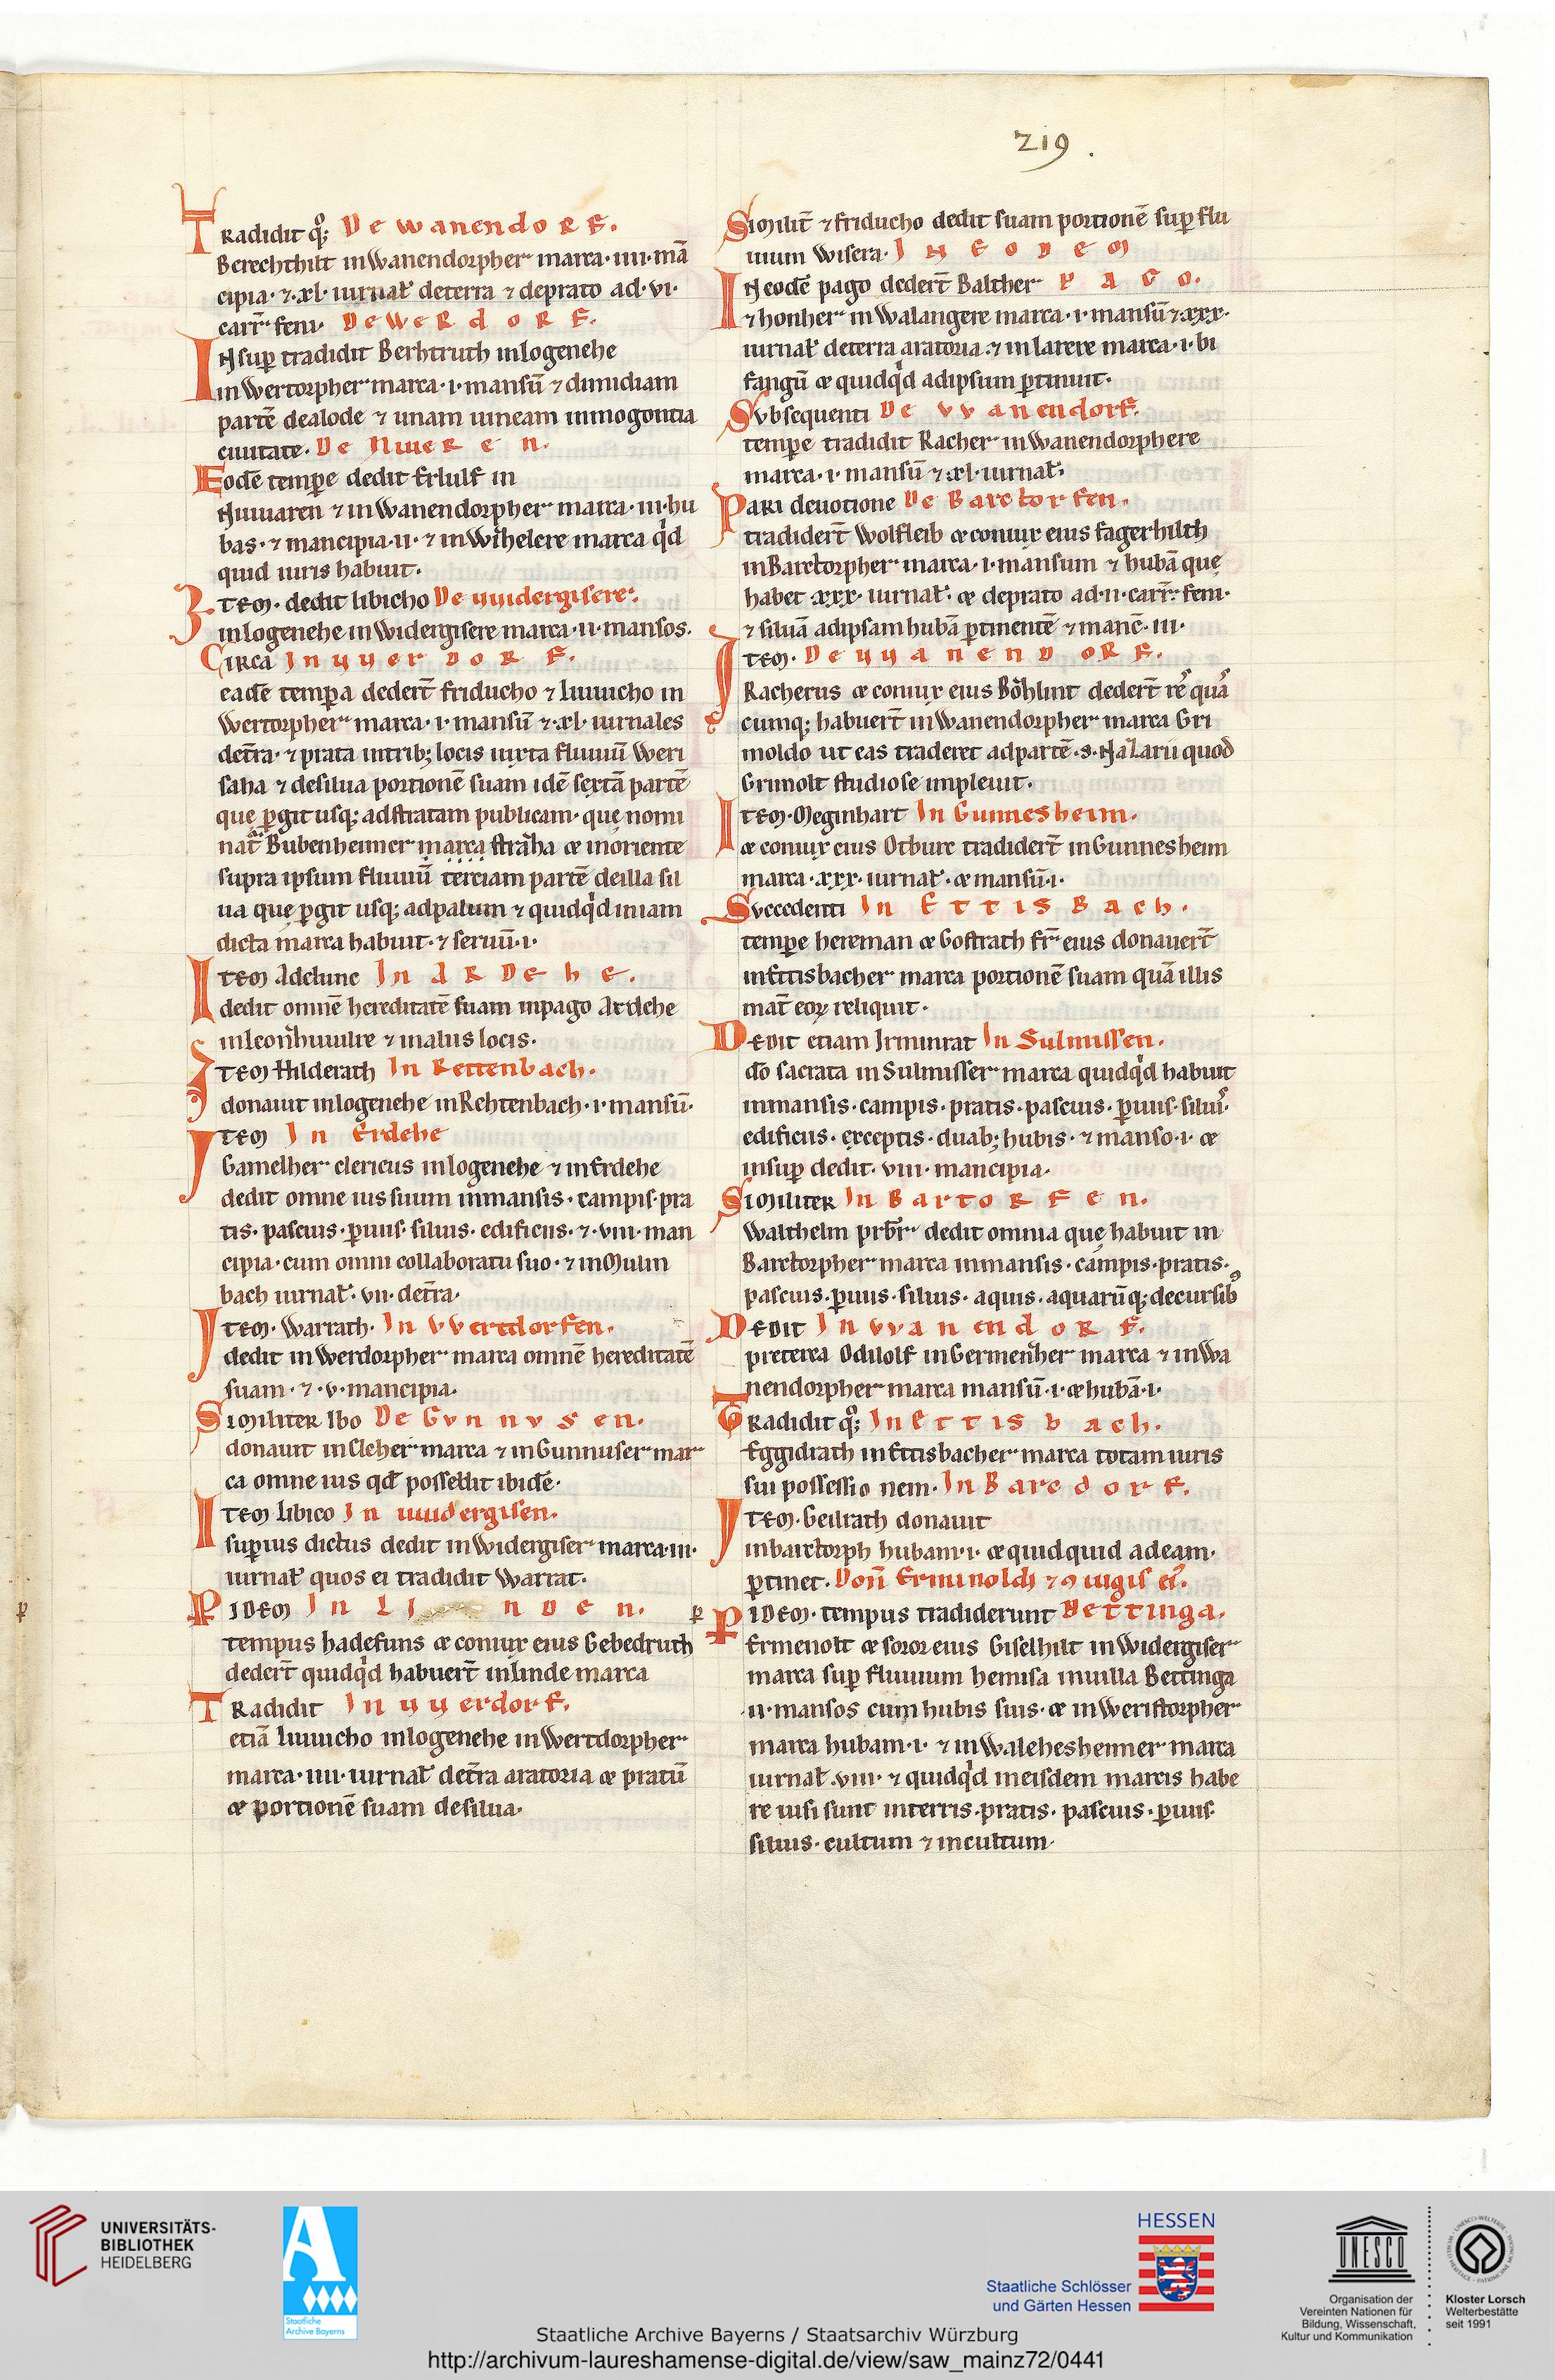 219.
Tradidit q̊; De wanendorf.
Berechthilt inWanendorpher marca·iiii·mā
cipia·⁊·xl·iurnal̄ deterra ⁊ deprato ad·vi·
carr̄ feni· De Werdorf.
Insup̱ tradidit Berhtruth inlogenehe
inWertorpher marca·i·mansū ⁊ dimidiam
partē dealode ⁊ unam uineam inmogontia
ciuitate· De Niueren.
Eodē temp̱e dedit Erlulf in
Niuuaren ⁊ inWanendorpher marca·iii·hu
bas·⁊ mancipia·ii·⁊ inWihelere marca qͥd
quid iuris habuit·
Item·dedit libicho De vuidergisere.
inlogenehe inWidergisere marca·ii·mansos.
Circa In vverdorf.
eadē temp̱a dedert̄ friducho ⁊ Liuuicho in
Wertorpher marca·i·mansū ⁊·xl·iurnales
det̄ra·⁊ prata intrib; locis iuxta fluuiū Weri
saha ⁊ desilua portionē suam idē sextā partē
quę p̱git usq; adstratam publicam·quę nomi
nat̄ Bubenheimer marca straͣha æ inoriente
supra ipsum fluuiū terciam partē deilla sil
ua quę p̱git usq; adpalum ⁊ quidqͥd iniam
dicta marca habuit·⁊ seruū·i·
Item Adelunc In ARDehe.
dedit omnē hereditatē suam inpago Ardehe
inleonͥhuuilre ⁊ inaliis locis·
Item Hilderath In Rettenbach.
donauit inlogenehe inRehtenbach·i·mansū·
Item In Erdehe
Gamelher clericus inlogenehe ⁊ inErdehe
dedit omne ius suum inmansis·campis·pra
tis·pascuis·p̱uiis·siluis·edificiis·⁊·viii·man
cipia·cum omni collaboratu suo·⁊ inMulin
bach iurnal̄·vii·det̄ra·
Item·Warrath·In vvertdorfen.
dedit inWerdorpher marca omnē hereditatē
suam·⁊·v·mancipia·
Similiter Ibo De Gunnusen.
donauit inCleher marca ⁊ inGunnuser mar
ca omne ius qd̄ possedit ibidē·
Item Libico In uuidergisen.
sup̱ius dictus dedit inWidergiser marca·iii·
iurnal̄ quos ei tradidit Warrat·
P̱ idem In Linden.
tempus hadefuns æ coniux eius Gebedruth
dedert̄ quidqͥd habuert̄ inlinde marca
Tradidit In vverdorf.
etiā Liuuicho inlogenehe inWertdorpher
marca·iiii·iurnal̄ det̄ra aratoria æ pratū
æ portionē suam desilua·
Similit̄ ⁊ friducho dedit suam portionē sup̱ flu
uium Wisera· In eodem
In eodē pago dedert̄ Balther pago.
⁊ honher inWalangere marca·i·mansū ⁊ xxx·
iurnal̄ deterra aratoria·⁊ inlarere marca·i·bi
fangū æ quidqͥd adipsum p̱tinuit·
Subsequenti De vvanendorf.
temp̱e tradidit Racher inWanendorphere
marca·i·mansū ⁊ xl·iurnal̄·
Pari deuotione De Barctorfen.
tradidert̄ Wolfleib æ coniux eius fagerhilth
inBarctorpher marca·i·mansum ⁊ hubā quę
habet xxx·iurnal̄·æ deprato ad·ii·carr̄ feni·
⁊ siluā adipsam hubā p̱tinentē ⁊ manc̄·iii·
Item·De vvanendorf.
Racherus æ coniux eius Böhlint dedert̄ rē quā
cumq; habuert̄ inWanendorpher marca Gri
moldo ut eas traderet adpartē·S·Nazarii quod
Grimolt studiose impleuit·
Item·Meginhart In Gunnesheim.
æ coniux eius Otburc tradidert̄ inGunnesheim
marca·xxx·iurnal̄·æ mansū·i·
Succedenti In Ettisbach.
temp̱e hereman æ Gostrath fr̄ eius donauert̄
inEttisbacher marca portionē suam quā illis
mat̄ eoꝝ reliquit·
Dedit etiam Irminrat In Sulmissen.
do̅ sacrata inSulmisser marca quidqͥd habuit
inmansis·campis·pratis·pascuis·p̱uiis·siluis·
edificiis·exceptis·duab; hubis·⁊ manso·i·æ
insup̱ dedit·viii·mancipia·
Similiter In Bartorfen.
Walthelm prb̄r dedit omnia quę habuit in
Barctorpher marca inmansis·campis·pratis·
pascuis·p̱uiis·siluis·aquis·aquarūq; decursib⁹
Dedit In vvanendorf.
preterea Odilolf inGermenͥher marca ⁊ inWa
nendorpher marca mansū·i·æ hubā·i·
Tradidit q̊; In Ettisbach.
Eggidrath inEttisbacher marca totam iuris
sui possessio nem·In Barcdorf.
Item·Geilrath donauit
inbarctorph hubam·i·æ quidquid adeam·
p̱tinet·Don̄ Erminoldi ⁊ ꝯiugis ei⁹.
P̱ idem·tempus tradiderunt Bettinga.
Ermenolt æ soror eius Giselhilt inWidergiser
marca sup̱ fluuium hemisa inuilla Bettinga
·ii·mansos cum hubis suis·æ inWeristorpher
marca hubam·i·⁊ inWalehesheimer marca
iurnal̄·viii·⁊ quidqͥd ineisdem marcis habe
re uisi sunt interris·pratis·pascuis·p̱uiis·
siluis·cultum ⁊ incultum·
UNIVERSITÄTS-
BIBLIOTHEK
HEIDELBERG
A
Staatliche
Archive Bayerns
HESSEN
Staatliche Schlösser
und Gärten Hessen
UNESCO
Organisation der
Vereinten Nationen für
Bildung, Wissenschaft,
Kultur und Kommunikation
Kloster Lorsch
Welterbestätte
seit 1991
Staatliche Archive Bayerns / Staatsarchiv Würzburg
http://archivum-laureshamense-digital.de/view/saw_mainz72/0441